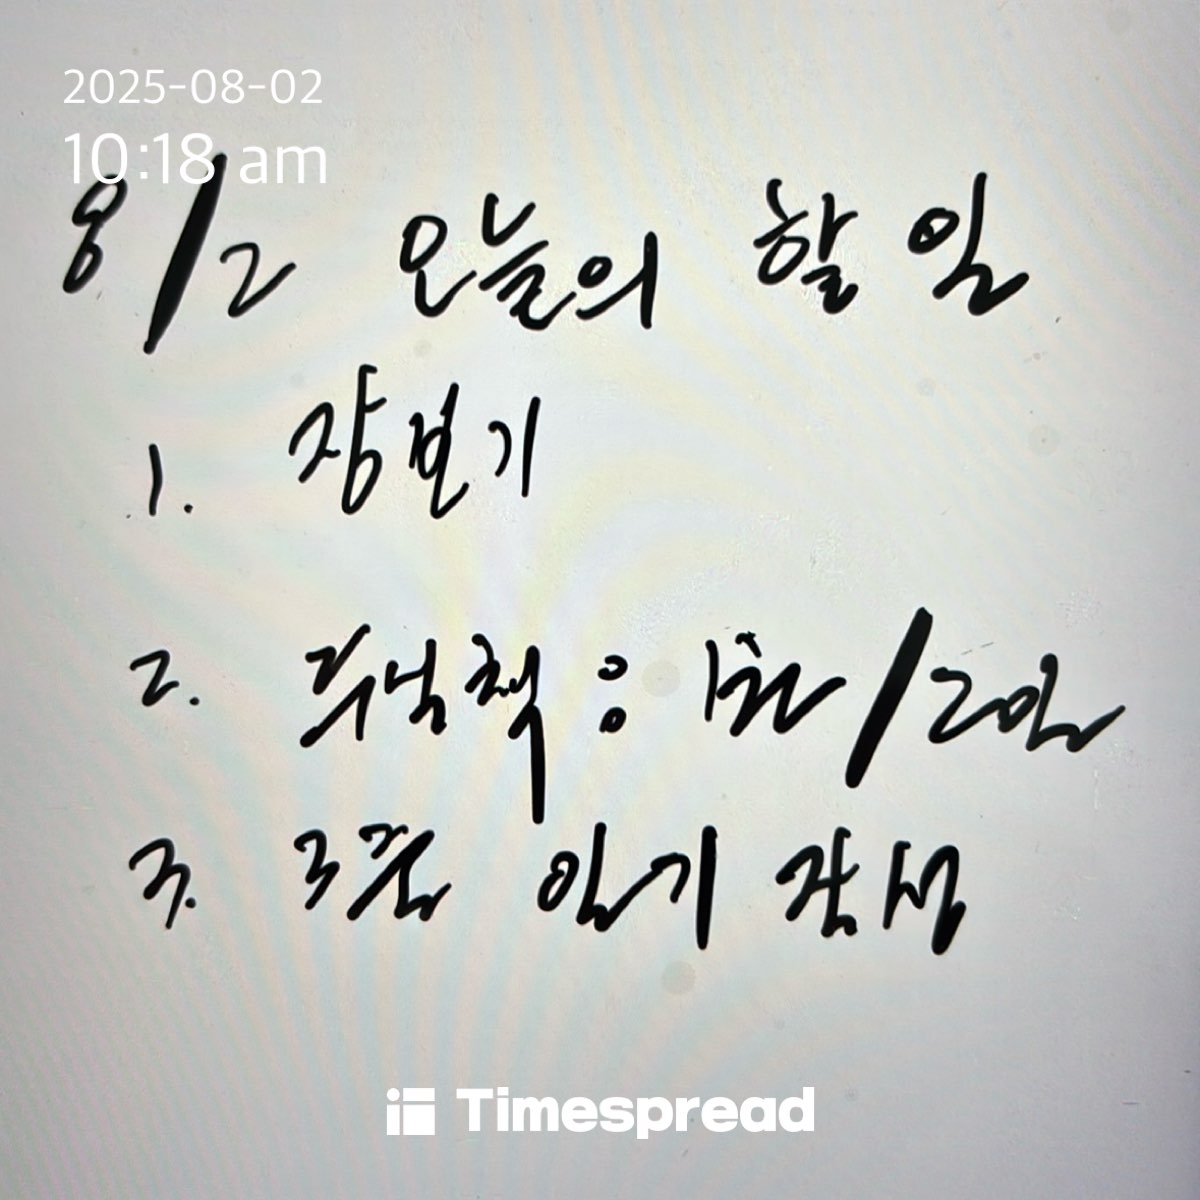 2025-08-02
10:18 am
8/2 오늘의 할 일
1. 장보기
2. 독서 : /2일
3. 3줄 일기 작성
Timespread